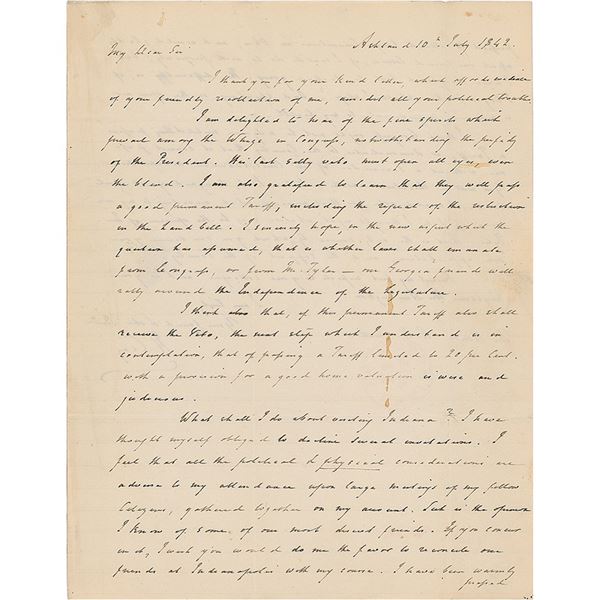 Ashland 10th July 1842.
My Dear Sir
I thank you for your kind letter, which affords evidence
of your friendly recollection of me, amidst all your political troubles.
I am delighted to hear of the fine spirit which
prevails among the Whigs in Congress, notwithstanding the perfidy
of the President. His last silly veto, must open all eyes, even
the blind. I am also gratified to learn that they will pass
a good permanent Tariff, including the repeal of the restriction
in the Land bill. I sincerely hope, in the new aspect which the
question has assumed, that is whether laws shall emanate
from Congress, or from Mr. Tyler — our Georgia friends will
rally around the Independence of the Legislature.
I think also that, if this permanent Tariff also shall
receive the Veto, the next step which I understand is in
contemplation, that of passing a Tariff limited to 20 per Cent.
with a provision for a good home valuation is wise and
judicious.
What shall I do about visiting Indiana? I have
thought myself obliged to decline several invitations. I
feel that all the political & physical considerations are
adverse to my attendance upon large meetings of my fellow
Citizens, gathered together on my account. Such is the opinion
I know of some of our most discreet friends. If you concur
in it, I wish you would do me the favor to reconcile our
friends at Indianapolis with my course. I have been warmly
pressed